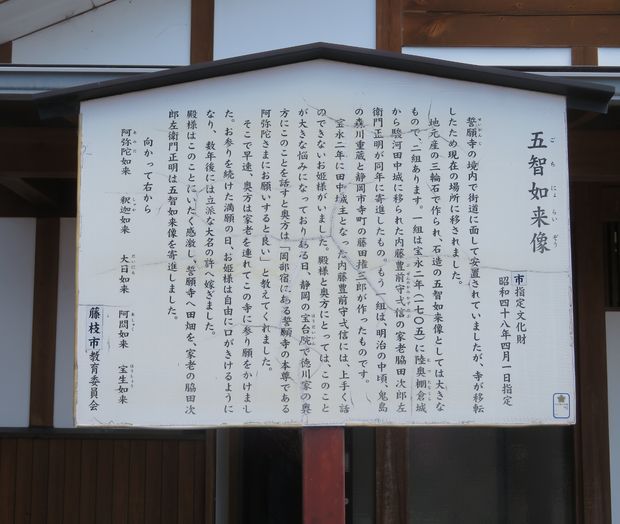 五智如来像
ごちにょらいぞう
市指定文化財
昭和四十八年四月一日指定
誓願寺の境内で街道に面して安置されていましたが、寺が移転
せいがんじ
したため現在の場所に移されました。
地元産の三輪石で作られ、石造の五智如来像としては大きな
もので、二組あります。一組は宝永二年(一七〇五)に陸奥棚倉城
から駿河田中城に移られた内藤豊前守弌信の家老脇田次郎左
衛門正明が同年に寄進したもの。もう一組は、明治の中頃、鬼島
の森川重蔵と静岡市寺町の藤田権三郎が作ったものです。
宝永二年に田中城主となった内藤豊前守弌信には、上手く話
のできないお姫様がいました。殿様と奥方にとっては、このこと
が大きな悩みになっておりある日、静岡の宝台院で徳川家の奥
方にこのことを話すと奥方は「岡部宿にある誓願寺の本尊である
阿弥陀さまに、お願いすると良い」と教えてくれました。
そこで早速、奥方は家老を連れてこの寺に参り願をかけまし
た。お参りを続けた満願の日、お姫様は自由に口がきけるように
なり、数年後には立派な大名の許へ嫁ぎました。
殿様はこのことにいたく感激し、誓願寺へ田畑を、家老の脇田次
郎左衛門正明は五智如来像を寄進しました。
向かって右から
阿弥陀如来 釈迦如来 大日如来 阿閦如来 宝生如来
藤枝市教育委員会